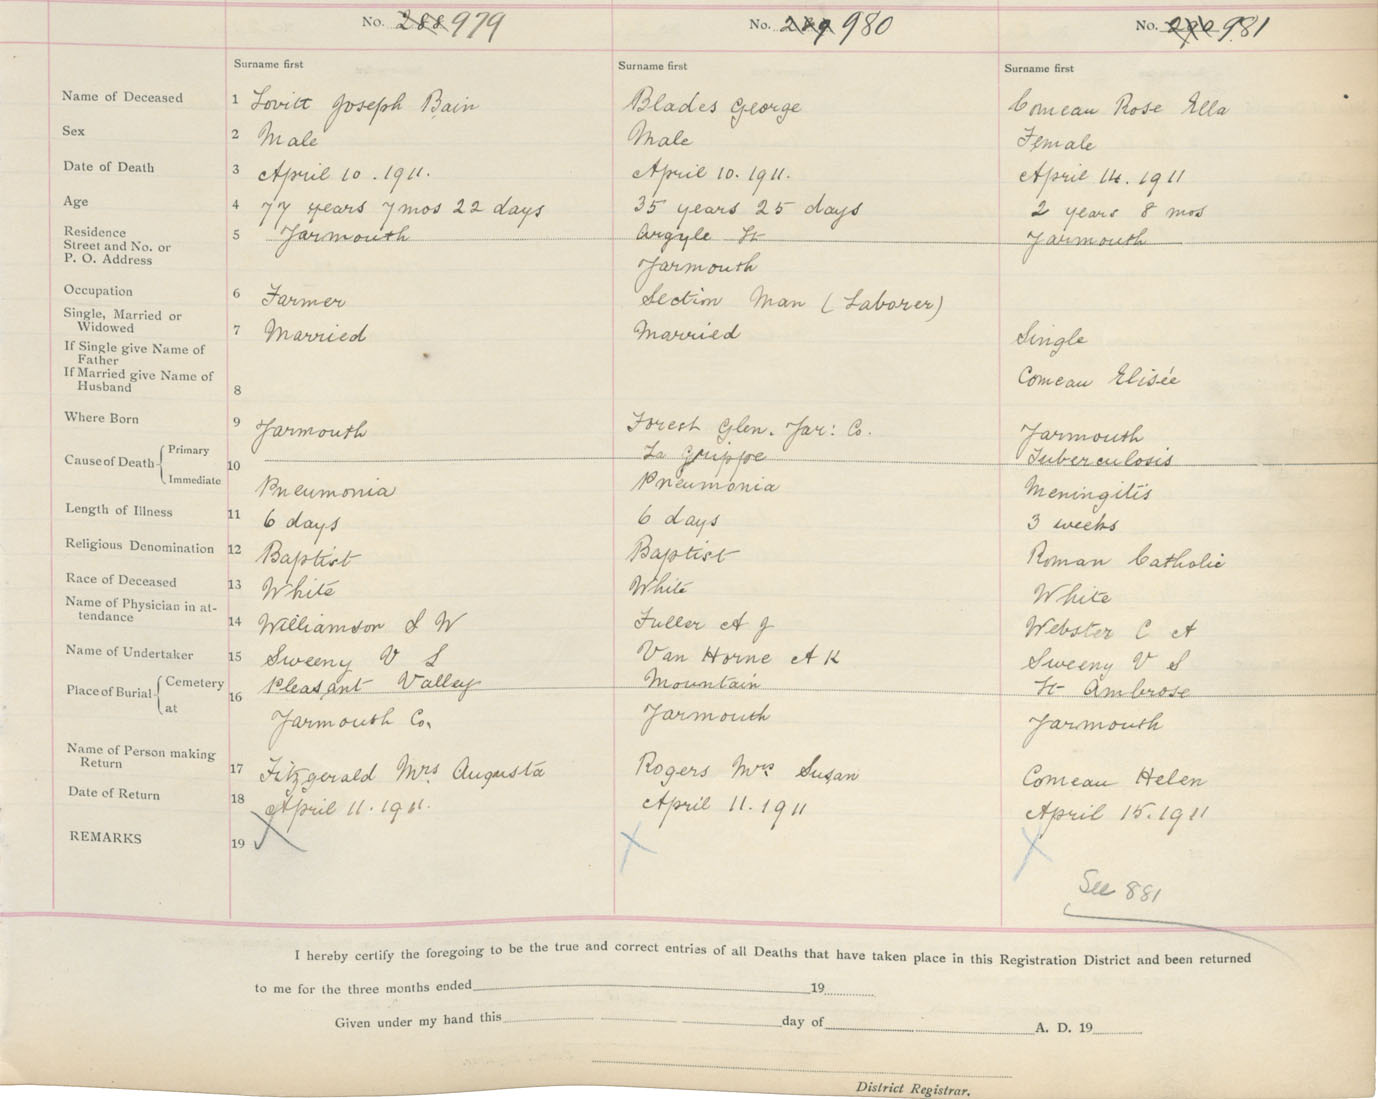 No. 288 979 No. 289 980 No. 290 981
Surname first Surname first Surname first
Name of Deceased 1 Lovitt Joseph Bain Blades George Comeau Rose Ella
Sex 2 Male Male Female
Date of Death 3 April 10. 1911. April 10. 1911. April 14. 1911
Age 4 77 years 7 mos 22 days 35 years 25 days 2 years 8 mos
Residence 5 Yarmouth Argyle St Yarmouth
Street and No. or
P. O. Address Yarmouth
Occupation 6 Farmer Section Man (Laborer)
Single, Married or
Widowed 7 Married Married Single
If Single give Name of
Father
If Married give Name of Comeau Elisée
Husband 8
Where Born 9 Yarmouth Forest Glen. Yar: Co. Yarmouth
Cause of Death Primary 10 La Grippe Tuberculosis
Immediate Pneumonia Pneumonia Meningitis
Length of Illness 11 6 days 6 days 3 weeks
Religious Denomination 12 Baptist Baptist Roman Catholic
Race of Deceased 13 White White White
Name of Physician in at-
tendance 14 Williamson S W Fuller A J Webster C A
Name of Undertaker 15 Sweeny V S Van Horne A K Sweeny V S
Place of Burial Cemetery 16 Pleasant Valley Mountain St Ambrose
at Yarmouth Co. Yarmouth Yarmouth
Name of Person making
Return 17 Fitzgerald Mrs Augusta Rogers Mrs Susan Comeau Helen
Date of Return 18 April 11. 1911. April 11. 1911 April 15. 1911
REMARKS 19
See 881
I hereby certify the foregoing to be the true and correct entries of all Deaths that have taken place in this Registration District and been returned
to me for the three months ended 19
Given under my hand this day of A. D. 19
District Registrar.